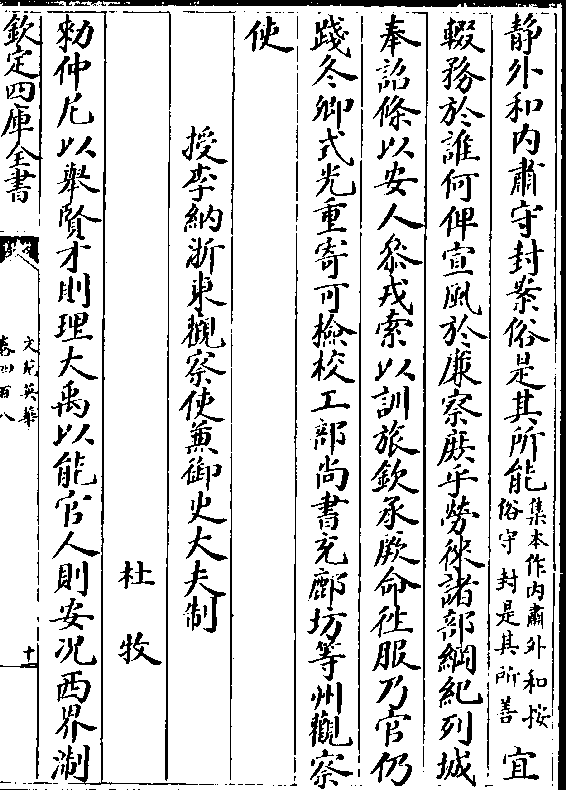 静外和内肅守封案俗是其所能集本作内肅外和按俗守封是其所善宜
輟務於誰何俾宣風於亷察庶乎勞徠諸部綱紀列城
奉詔條以安人叅戎索以訓旅欽承厥命徃服乃官仍
踐冬卿式光重寄可檢校工部尚書充鄜坊等州觀察
使
授李納浙東觀察使兼御史大夫制
杜牧
勑仲尼以舉賢才則理大禹以能官人則安况西界淛
欽定四庫全書
文苑英華
卷四百八
十一